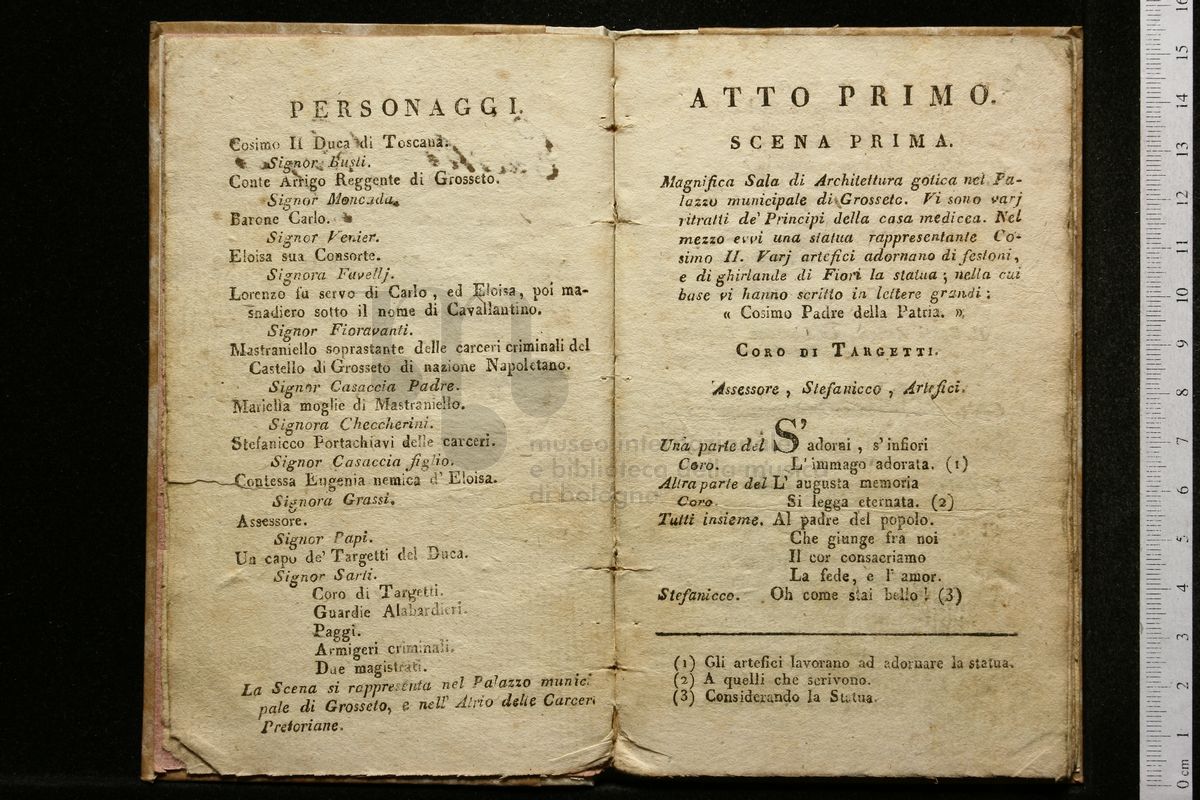 PERSONAGGI.
Cosimo II Duca di Toscana.
Signor Busti.
Conte Arrigo Reggente di Grosseto.
Signor Moncada.
Barone Carlo.
Signor Venier.
Eloisa sua Consorte.
Signora Favellj.
Lorenzo fu servo di Carlo, ed Eloisa, poi ma-
snadiero sotto il nome di Cavallantino.
Signor Fioravanti.
Mastraniello soprastante delle carceri criminali del
Castello di Grosseto di nazione Napoletano.
Signor Casaccia Padre.
Mariella moglie di Mastraniello.
Signora Checcherini.
Stefanicco Portachiavi delle carceri.
Signor Casaccia figlio.
Contessa Eugenia nemica d' Eloisa.
Signora Grassi.
Assessore.
Signor Papi.
Un capo de' Targetti del Duca.
Signor Sarti.
Coro di Targetti.
Guardie Alabardieri.
Paggi.
Armigeri criminali.
Due magistrati.
La Scena si rappresenta nel Palazzo munici
pale di Grosseto, e nell' Atrio delle Carceri
Pretoriane.
ATTO PRIMO.
SCENA PRIMA.
Magnifica Sala di Architettura gotica nel Pa-
lazzo municipale di Grosseto. Vi sono varj
ritratti de' Principi della casa medicea. Nel
mezzo evvi una statua rappresentante Co-
simo II. Varj artefici adornano di festoni,
e di ghirlande di Fiori la statua; nella cui
base vi hanno scritto in lettere grandi:
« Cosimo Padre della Patria. »
CORO DI TARGETTI.
Assessore, Stefanicco, Artefici.
Una parte del S' adorni, s' infiori
Coro. L' immago adorata. (1)
Altra parte del L' augusta memoria
Coro. Si legga eternata. (2)
Tutti insieme. Al padre del popolo.
Che giunge fra noi
Il cor consacriamo
La fede, e l' amor.
Stefanicco. Oh come stai bello! (3)
(1) Gli artefici lavorano ad adornare la statua.
(2) A quelli che scrivono.
(3) Considerando la Statua.
museo internazionale
e biblioteca della musica
di bologna
0 cm 1 2 3 4 5 6 7 8 9 10 11 12 13 14 15 16